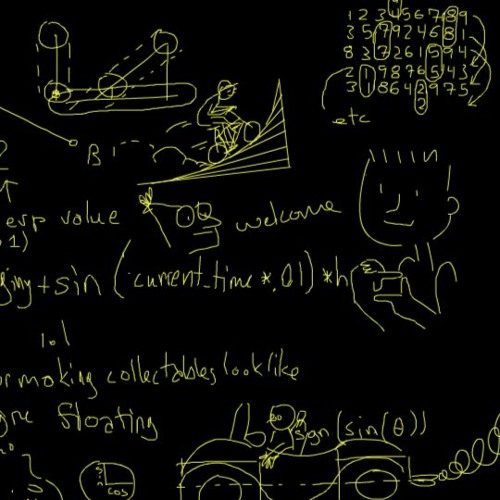 1 2 3 4 5 6 7 8 9
3 5 7 9 2 4 6 8 1
8 3 7 2 6 1 5 9 4
2 1 9 8 7 6 5 4 3
3 1 8 6 4 2 9 7 5
2
etc
B
erp value
1)
welcome
ging + sin (current_time * .01) * h
lol
or making collectables look like
floating
sign(sin(θ))
cos